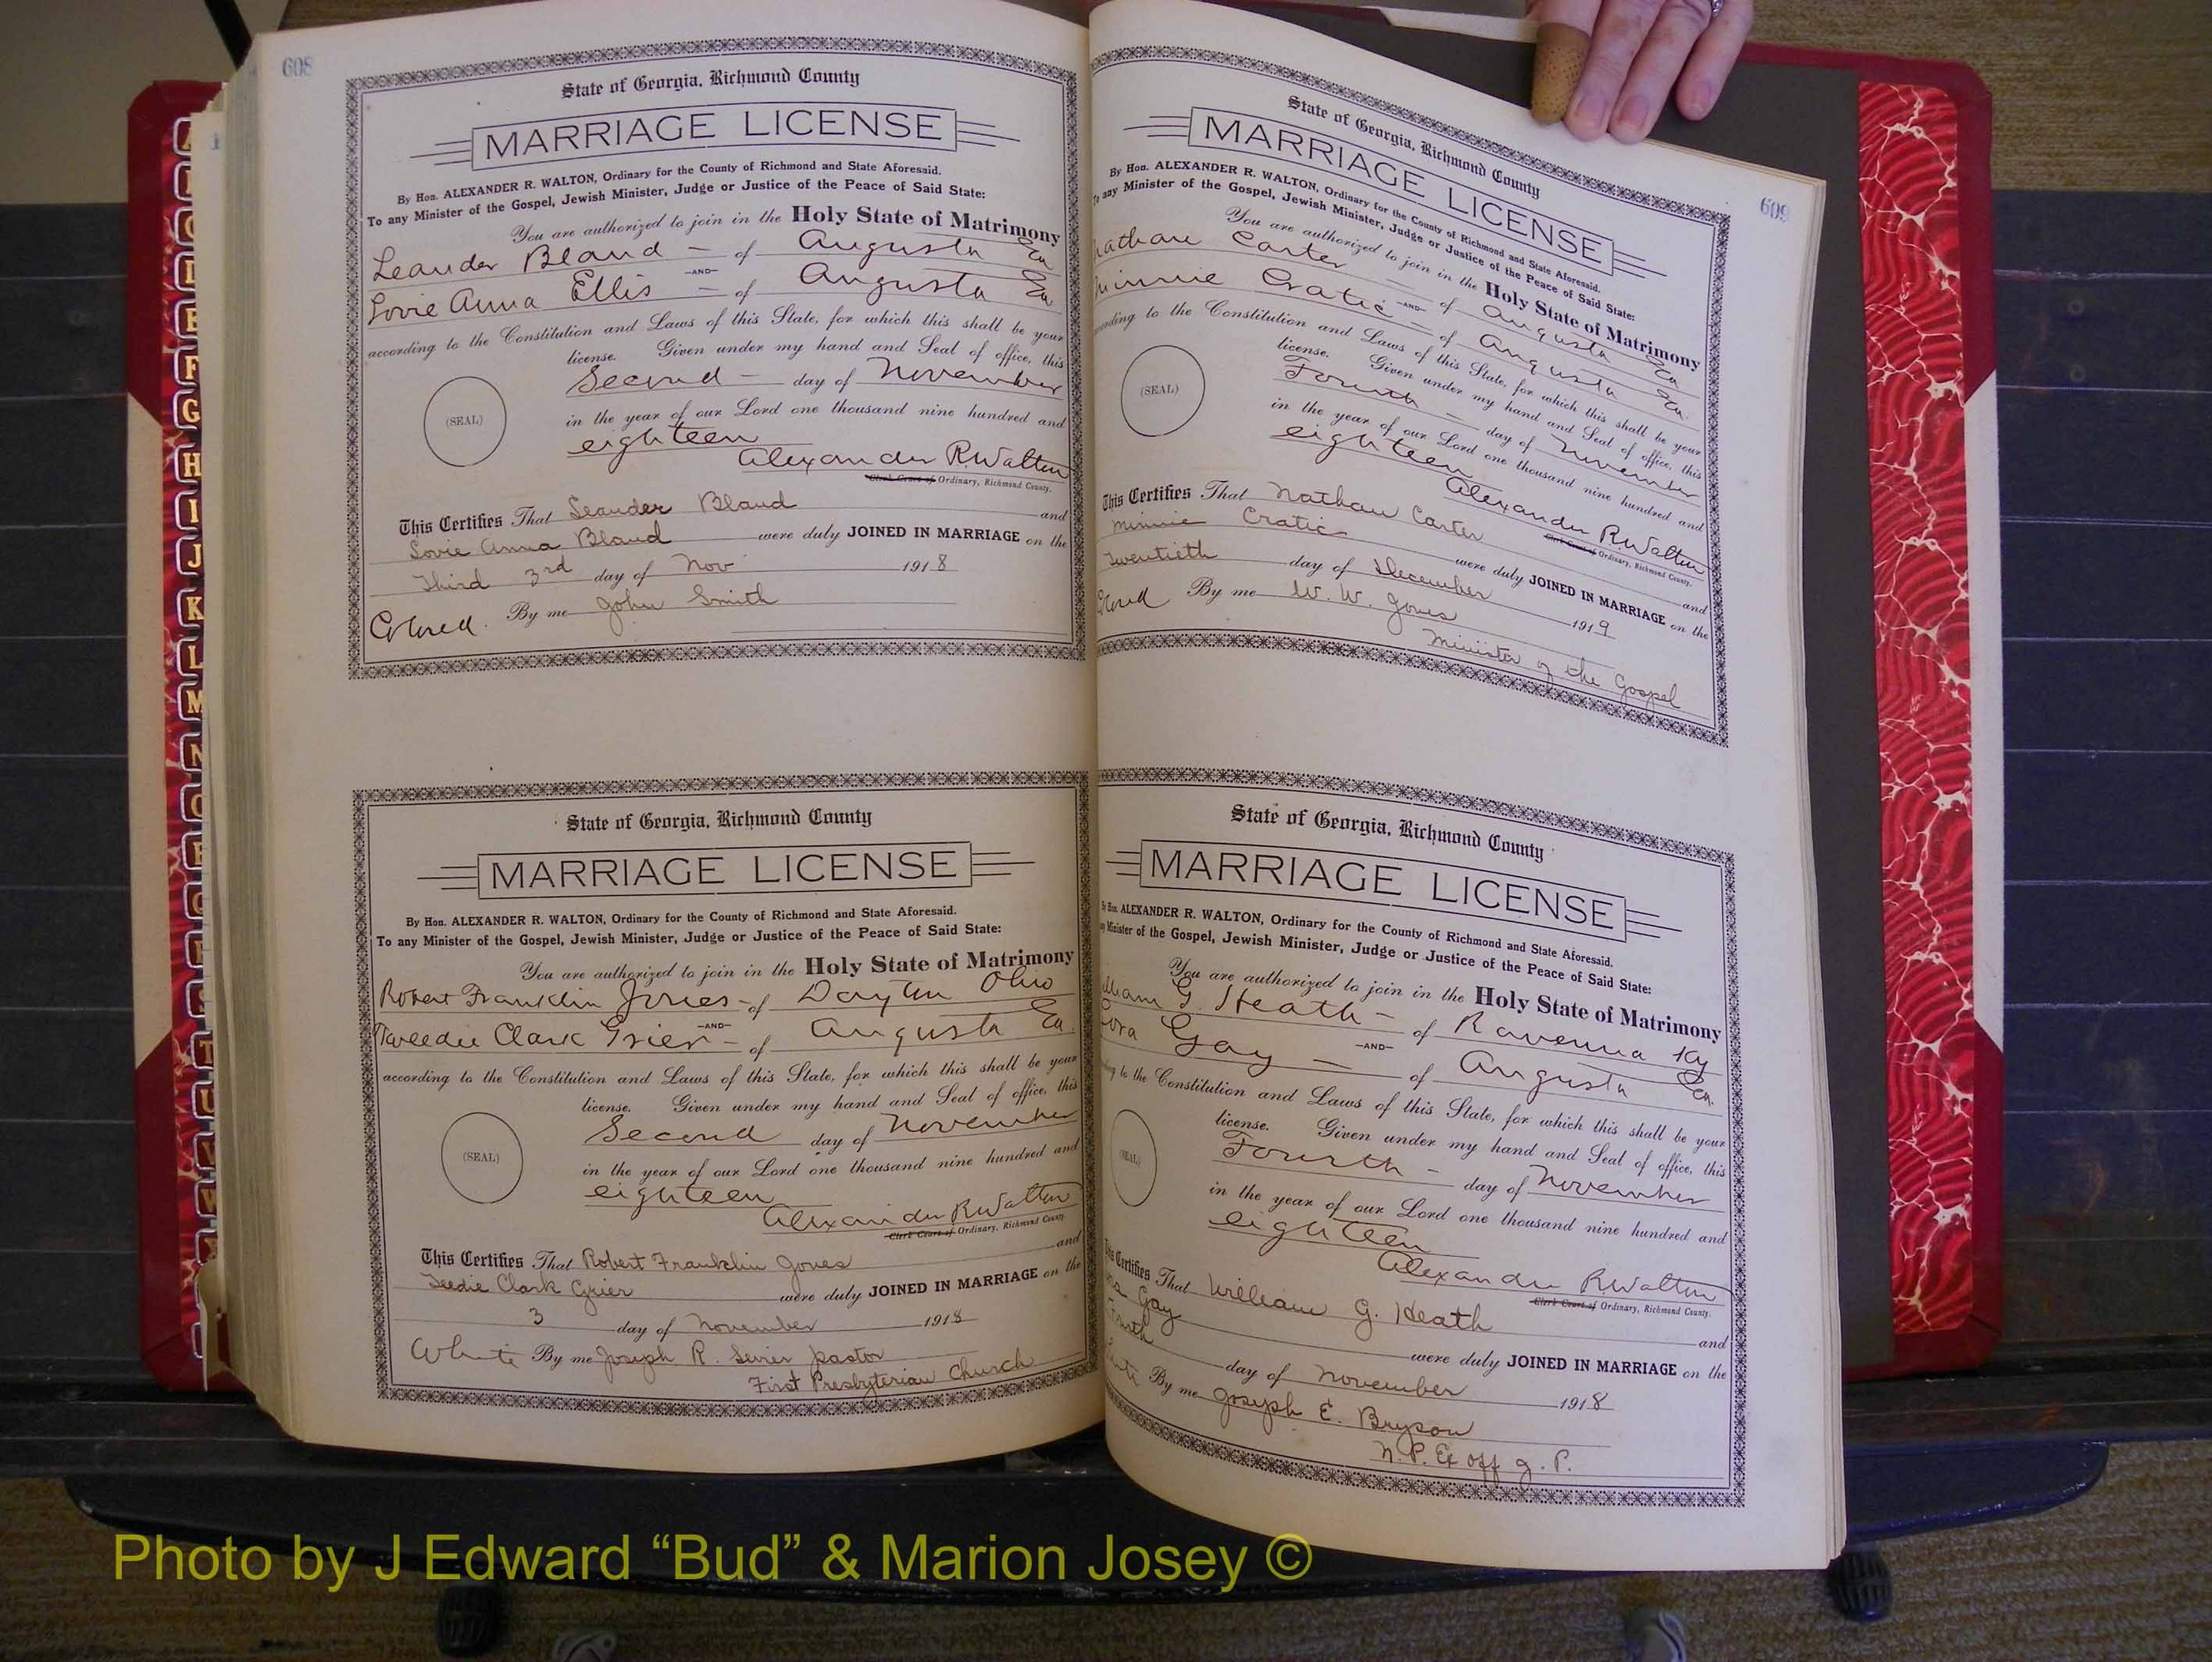 608
State of Georgia, Richmond County
MARRIAGE LICENSE
By Hon. ALEXANDER R. WALTON, Ordinary for the County of Richmond and State Aforesaid.
To any Minister of the Gospel, Jewish Minister, Judge or Justice of the Peace of Said State:
You are authorized to join in the Holy State of Matrimony
Leander Bland - of Augusta Ga
-AND-
Lovie Anna Ellis - of Augusta Ga
according to the Constitution and Laws of this State, for which this shall be your
license. Given under my hand and Seal of office, this
Second - day of November
(SEAL)
in the year of our Lord one thousand nine hundred and
eighteen
Alexander R. Walton
Clerk Court of Ordinary, Richmond County.
This Certifies That Leander Bland and
Lovie Anna Bland were duly JOINED IN MARRIAGE on the
Third 3rd day of Nov 1918
Colored. By me John Smith
State of Georgia, Richmond County
MARRIAGE LICENSE
By Hon. ALEXANDER R. WALTON, Ordinary for the County of Richmond and State Aforesaid.
To any Minister of the Gospel, Jewish Minister, Judge or Justice of the Peace of Said State:
You are authorized to join in the Holy State of Matrimony
Robert Franklin Jones - of Dayton Ohio
-AND-
Tweedie Clark Grier - of Augusta Ga.
according to the Constitution and Laws of this State, for which this shall be your
license. Given under my hand and Seal of office, this
Second day of November
(SEAL)
in the year of our Lord one thousand nine hundred and
eighteen
Alexander R Walton
Clerk Court of Ordinary, Richmond County.
This Certifies That Robert Franklin Jones and
Teedie Clark Grier were duly JOINED IN MARRIAGE on the
3 day of November 1918
White By me Joseph R. Sevier pastor
First Presbyterian Church
609
State of Georgia, Richmond County
MARRIAGE LICENSE
By Hon. ALEXANDER R. WALTON, Ordinary for the County of Richmond and State Aforesaid.
To any Minister of the Gospel, Jewish Minister, Judge or Justice of the Peace of Said State:
You are authorized to join in the Holy State of Matrimony
Nathan Carter - of Augusta Ga
-AND-
Minnie Cratic - of Augusta Ga.
according to the Constitution and Laws of this State, for which this shall be your
license. Given under my hand and Seal of office, this
Fourth - day of November
(SEAL)
in the year of our Lord one thousand nine hundred and
eighteen
Alexander R. Walton
Clerk Court of Ordinary, Richmond County.
This Certifies That Nathan Carter and
Minnie Cratic were duly JOINED IN MARRIAGE on the
Twentieth day of December 1919
Colored By me W. W. Jones
Minister of the Gospel
State of Georgia, Richmond County
MARRIAGE LICENSE
By Hon. ALEXANDER R. WALTON, Ordinary for the County of Richmond and State Aforesaid.
Minister of the Gospel, Jewish Minister, Judge or Justice of the Peace of Said State:
You are authorized to join in the Holy State of Matrimony
William G. Heath - of Ravenna Ky
-AND-
Gay - of Augusta Ga.
to the Constitution and Laws of this State, for which this shall be your
license. Given under my hand and Seal of office, this
Fourth - day of November
(SEAL)
in the year of our Lord one thousand nine hundred and
eighteen
Alexander R Walton
Clerk Court of Ordinary, Richmond County.
This Certifies That William G. Heath and
Gay were duly JOINED IN MARRIAGE on the
Fourth day of November 1918
White By me Joseph E. Bryson
N. P. Ex off J. P.
Photo by J Edward “Bud” & Marion Josey ©